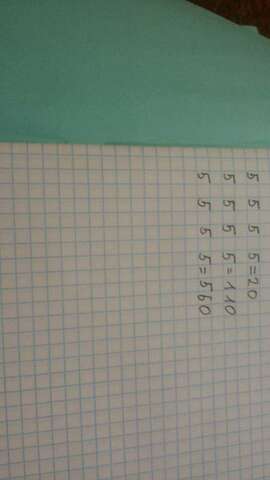 5 5 5 5=20
5 5 5 5=110
5 5 5 5=560